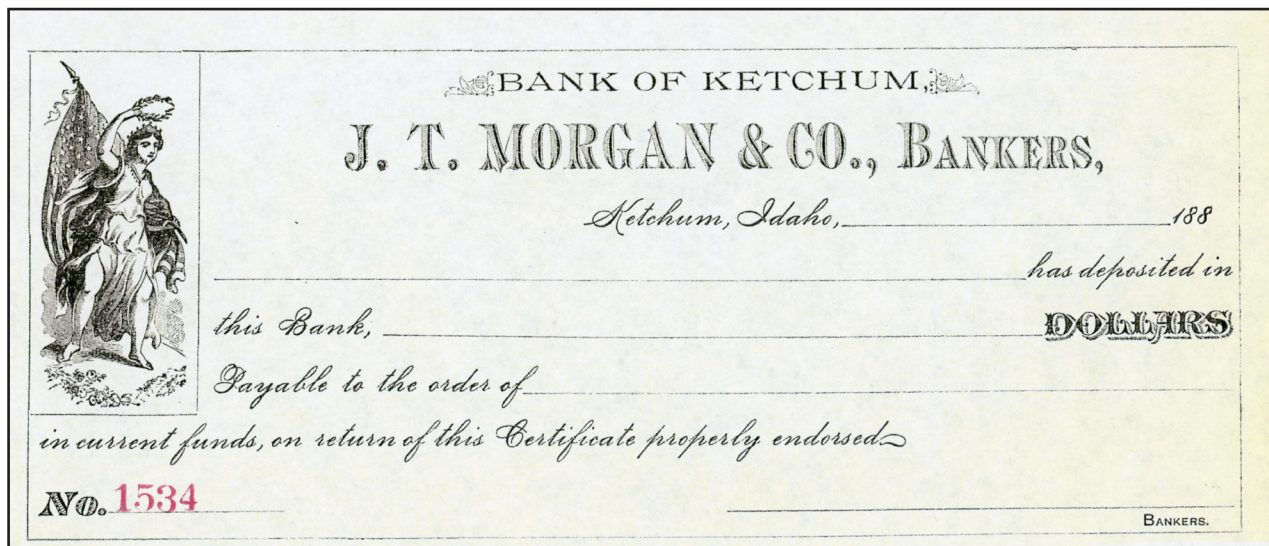 BANK OF KETCHUM,
J. T. MORGAN & CO., BANKERS,
Ketchum, Idaho, 188
has deposited in
this Bank, DOLLARS
Payable to the order of
in current funds, on return of this Certificate properly endorsed
No. 1534
BANKERS.